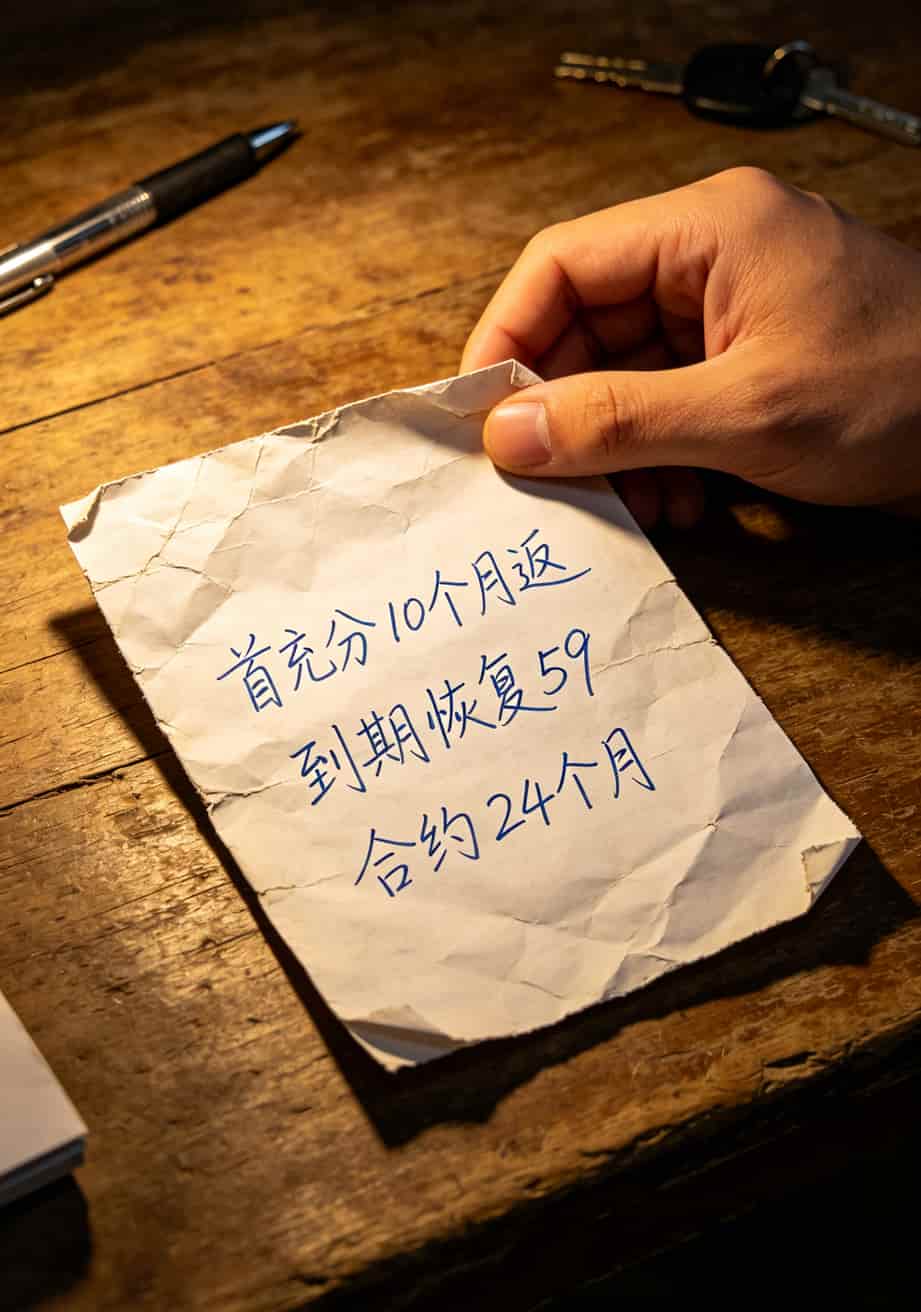 首充分10个月返
到期恢复59
合约24个月